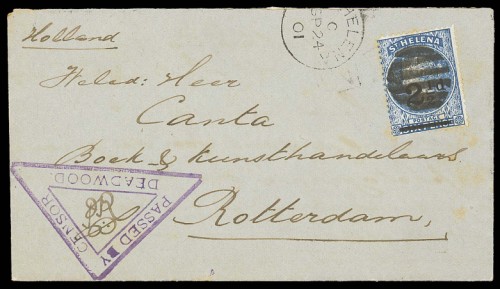 Holland
ST HELENA
C
SP 24
01
ST HELENA
2½d
POSTAGE
SIXPENCE
Weled: Heer
Canta
Boek & Kunsthandelaars
Rotterdam,
PASSED BY
CENSOR
DEADWOOD.